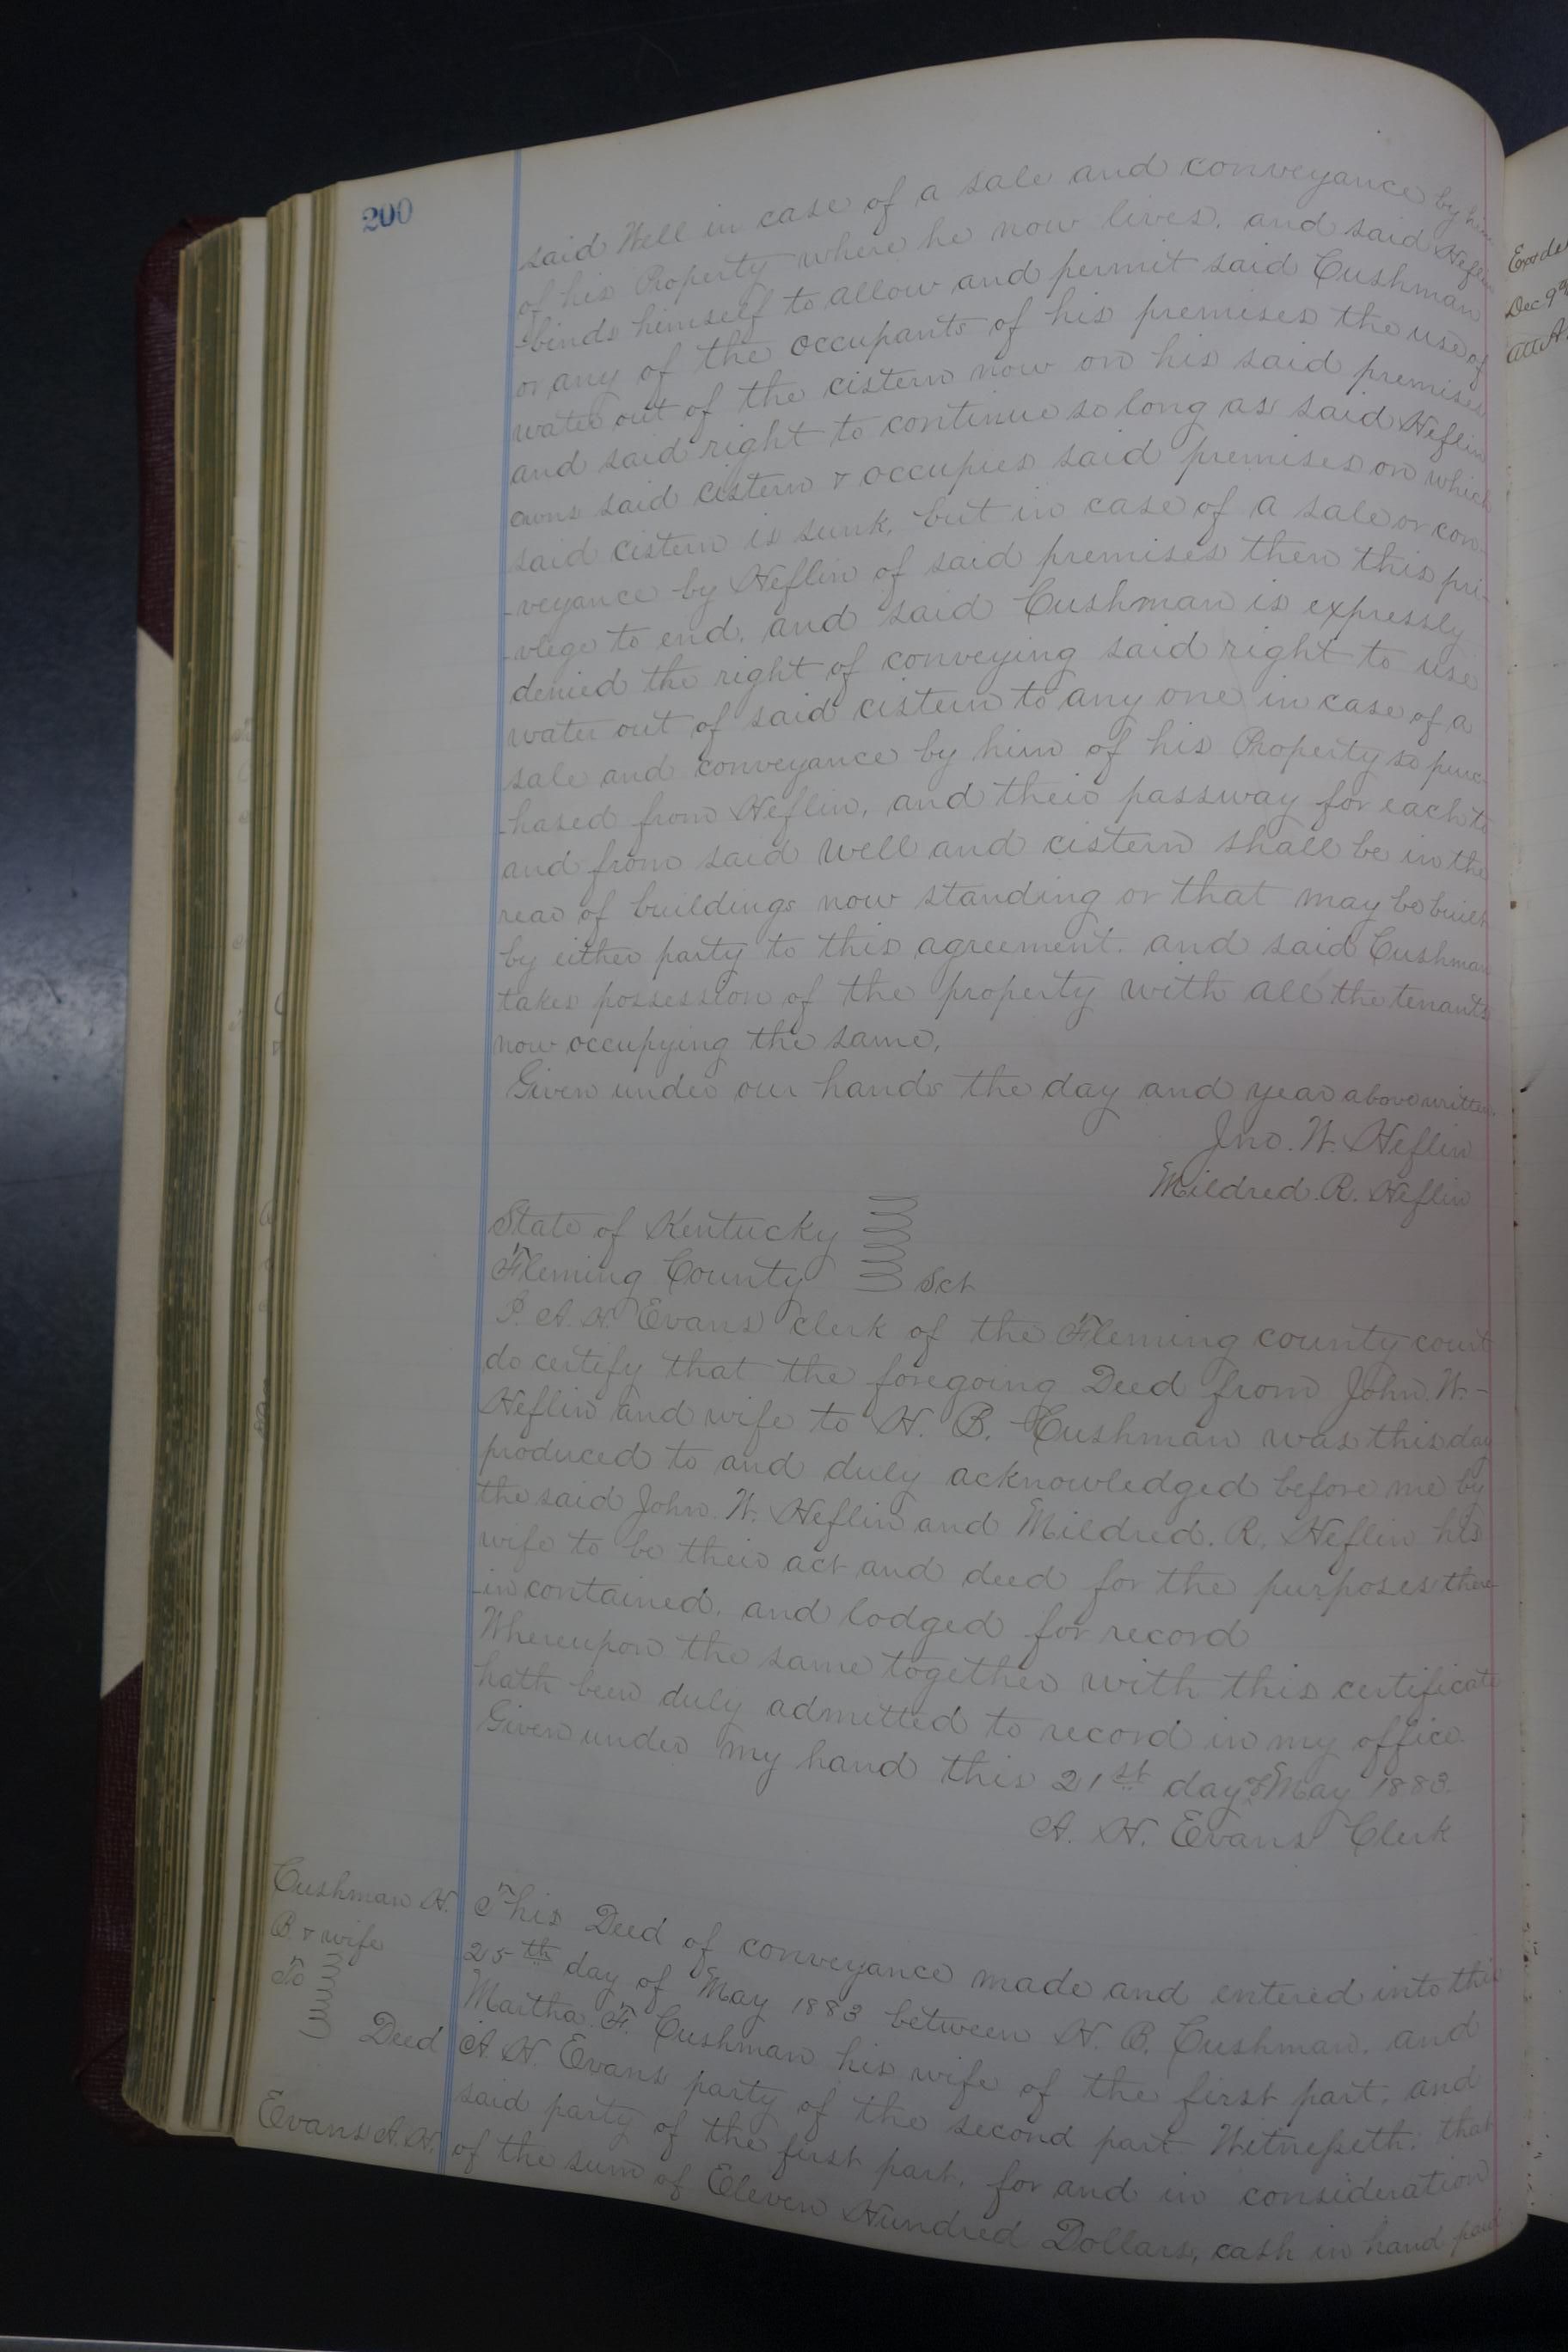 200
said Well in case of a sale and conveyance by him
of his Property where he now lives. and said Heflin
-binds himself to allow and permit said Cushman
or any of the occupants of his premises the use of
water out of the cistern now on his said premises
and said right to continue so long as said Heflin
owns said cistern & occupies said premises on which
said cistern is sunk, but in case of a sale or con-
-veyance by Heflin of said premises then this pri-
-vlege to end. and said Cushman is expressly
denied the right of conveying said right to use
water out of said cistern to any one in case of a
sale and conveyance by him of his Property so purc-
-hased from Heflin, and their passway for each to
and from said well and cistern shall be in the
rear of buildings now standing or that may be built
by either party to this agreement. and said Cushman
takes possession of the property with all the tenants
now occupying the same.
Given under our hands the day and year above written.
Jno. W. Heflin
Mildred. R. Heflin
State of Kentucky
Fleming County Sct
I. A. H. Evans clerk of the Fleming county court
do certify that the foregoing Deed from John. W.-
Heflin and wife to H. B. Cushman was this day
produced to and duly acknowledged before me by
the said John. W. Heflin and Mildred. R. Heflin his
wife to be their act and deed for the purposes there-
-in contained. and lodged for record
Whereupon the same together with this certificate
hath been duly admitted to record in my office.
Given under my hand this 21st day of May 1883.
A. H. Evans Clerk
Cushman H.
B. & wife
To
Deed
Evans A. H.
This Deed of conveyance made and entered into this
25th day of May 1883 between H. B. Cushman. and
Martha. F. Cushman his wife of the first part. and
A. H. Evans party of the second part Witnesseth: that
said party of the first part. for and in consideration
of the sum of Eleven Hundred Dollars, cash in hand paid
Dec 9th